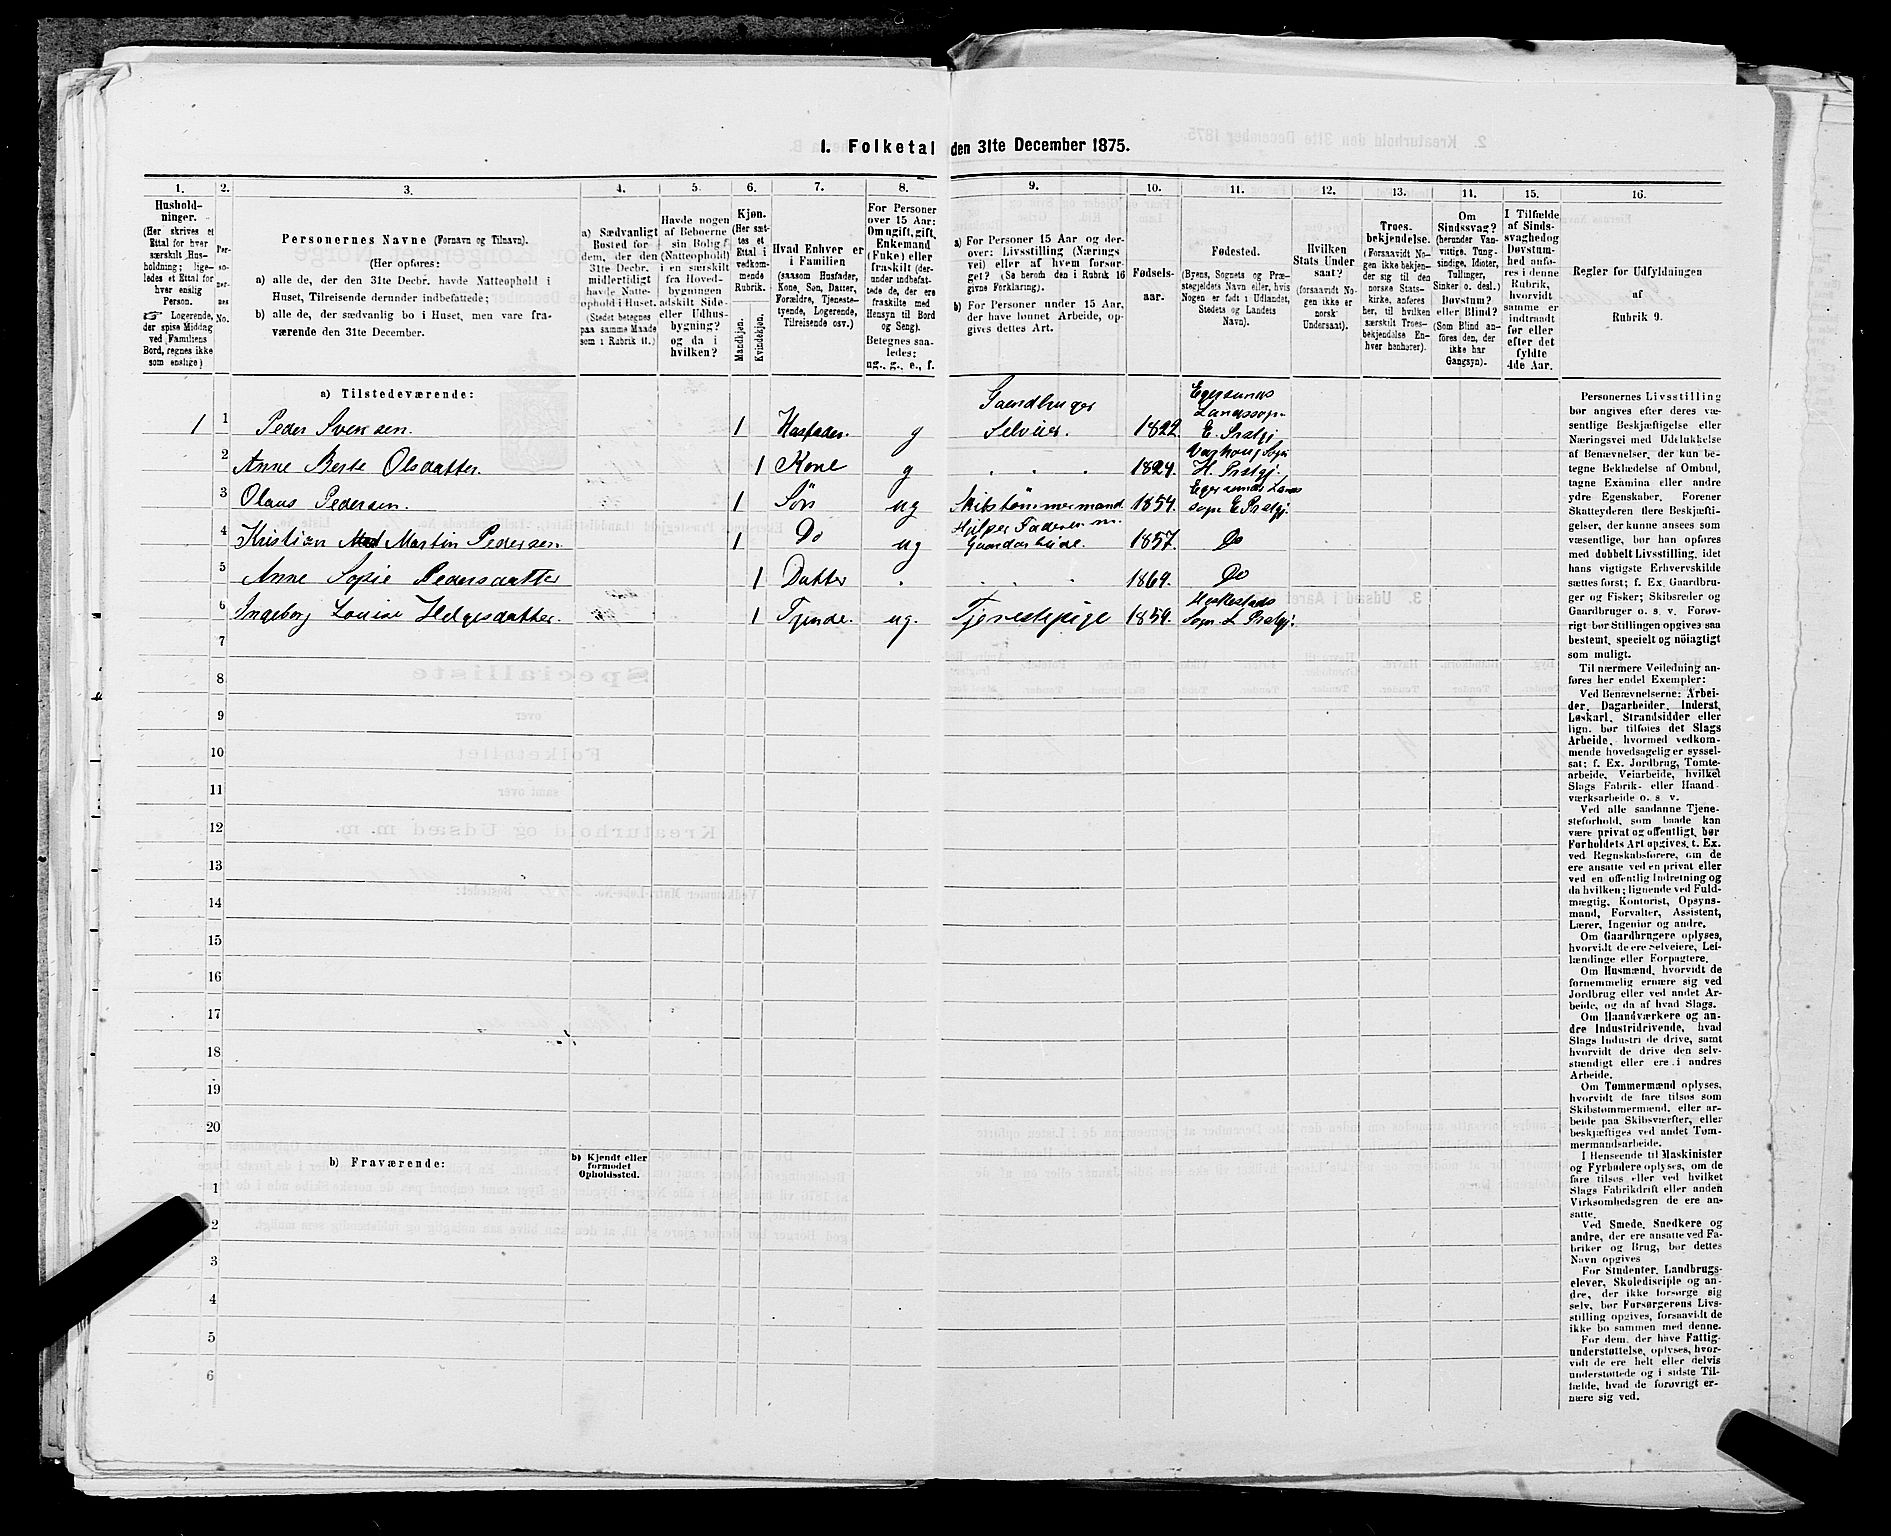 1. Folketal den 31te December 1875.
1. 2. 3. 4. 5. 6. 7. 8. 9. 10. 11. 12. 13. 14. 15. 16.
Hushold-
ninger.
(Her skrives et
Ettal for hver
særskilt Hus-
holdning; lige-
ledes et Ettal for
hver enslig
Person.
☞ Logerende,
der spise Middag
ved Familiens
Bord, regnes ikke
som enslige)
Per-
so-
ner-
nes
No.
Personernes Navne (Fornavn og Tilnavn).
(Her opføres:
a) alle de, der den 31te Decbr. havde Natteophold i
Huset, Tilreisende derunder indbefattede;
b) alle de, der sædvanlig bo i Huset, men vare fra-
værende den 31te December.
a) Sædvanligt
Bosted for
dem, der den
31te Decbr.
midlertidigt
havde Natte-
ophold i Huset.
(Stedet betegnes
paa samme Maade
som i Rubrik 11.)
Havde nogen
af Beboerne
sin Bolig
(Natteophold)
i en særskilt
fra Hoved-
bygningen
adskilt Side-
eller Udhus-
bygning?
og da i
hvilken?
Kjøn.
(Her sæt-
tes et
Ettal i
vedkom-
mende
Rubrik.
Mandkjøn.
Kvindekjøn.
Hvad Enhver er
i Familien
(saasom Husfader,
Kone, Søn, Datter,
Forældre, Tjeneste-
tyende, Logerende,
Tilreisende osv.)
For Personer
over 15 Aar:
Om ugift, gift,
Enkemand
(Enke) eller
fraskilt (der-
under indbefat-
tede de, der ere
fraskilte med
Hensyn til Bord
og Seng).
Betegnes saa-
ledes:
ug., g., e., f.
a) For Personer 15 Aar og der-
over: Livsstilling (Nærings
vei) eller af hvem forsør-
get? (Se herom den i Rubrik 16
givne Forklaring).
b) For Personer under 15 Aar,
der have lønnet Arbeide, op-
gives dettes Art.
Fødsels-
aar.
Fødested.
(Byens, Sognets og Præ-
stegjeldets Navn eller, hvis
Nogen er født i Udlandet,
Stedets og Landets
Navn).
Hvilken
Stats Under
saat?
(forsaavidt No-
gen ikke er
norsk
Undersaat).
Troes-
bekjendelse.
(Forsaavidt No-
gen ikke bekjen-
der sig til den
norske Stats-
kirke, anføres
her, til hvilken
særskilt Troes-
bekjendelse En-
hver henhører).
Om
Sindssvag?
(herunder Van-
vittige, Tung-
sindige, Idioter,
Tullinger,
Sinker o. desl.)
Døvstum?
eller Blind?
(Som Blind an-
føres den, der
ikke har
Gangsyn).
I Tilfælde
af Sinds-
svaghed og
Døvstum-
hed anfø-
res i denne
Rubrik,
hvorvidt
samme er
indtraadt
før eller
efter det
fyldte
4de Aar.
Regler for Udfyldningen
af
Rubrik 9.
a) Tilstedeværende:
1 1 Peder Svensen. 1 Husfader. g Gaardbruger Selveier. 1822. Egersunds Landssogn E. Prstgj
2 Anne Berte Olsdatter. 1 Kone g . . . 1824. Varhoug Sogn H. Prstgj.
3 Olaus Pedersen. 1 Søn ug Skibstømmermand. 1854. Egersunds Lands sogn E Prstgj.
4 Kristian Martin Pedersen. 1 Do ug Hjelper Faderen m. Gaardarbeide. 1857. Do
5 Anne Sofie Pedersdatter 1 Datter . . . . 1864. Do
6 Ingeborg Louise Helgesdatter. 1 Tjende. ug. Tjenestepige 1854. Heskestads Sogn L Prstgj.
7
8
9
10
11
12
13
14
15
16
17
18
19
20
b) Fraværende:
b) Kjendt eller
formodet
Opholdssted.
1
2
3
4
5
6
Personernes Livsstilling
bør angives efter deres væ-
sentlige Beskjæftigelse eller
Næringsvei med Udelukkelse
af Benævnelser, der kun be-
tegne Beklædelse af Ombud,
tagne Examina eller andre
ydre Egenskaber. Forener
Skatteyderen flere Beskjæfti-
gelser, der kunne ansees som
væsentlige, bør han opføres
med dobbelt Livsstilling, idet
hans vigtigste Erhvervskilde
sættes først; f. Ex. Gaardbru-
ger og Fisker; Skibsreder og
Gaardbruger o. s. v. Forøv-
rigt bør Stillingen opgives saa
bestemt, specielt og nöiagtigt
som muligt.
Til nærmere Veiledning an-
føres her endel Exempler:
Ved Benævnelserne: Arbei-
der, Dagarbeider, Inderst,
Løskarl, Strandsidder eller
lign. bør tilføies det Slags
Arbeide, hvormed vedkom-
mende hovedsagelig er syssel-
sat; f. Ex. Jordbrug, Tomte-
arbeide, Veiarbeide, hvilket
Slags Fabrik- eller Haand-
værksarbeide o. s. v.
Ved alle saadanne Tjene-
steforhold, som baade kan
være privat og offentligt, bør
Forholdets Art opgives, t. Ex.
ved Regnskabsførere, om de
ere ansatte ved en privat eller
ved en offentlig Indretning og
da hvilken; lignende ved Fuld-
mægtig, Kontorist, Opsyns-
mand, Forvalter, Assistent,
Lærer, Ingeniør og andre.
Om Gaardbrugere oplyses,
hvorvidt de ere Selveiere, Lei-
lændinge eller Forpagtere.
Om Husmænd, hvorvidt de
fornemmelig ernære sig ved
Jordbrug eller ved andet Ar-
beide, og da af hvad Slags.
Om Haandværkere og an-
dre Industridrivende, hvad
Slags Industri de drive, samt
hvorvidt de drive den selv-
stændigt eller ere i andres
Arbeide.
Om Tømmermænd oplyses,
hvorvidt de fare tilsøs som
Skibstømmermænd, eller ar-
beide paa Skibsværfter, eller
beskjæftiges ved andet Tøm-
mermandsarbeide.
I Henseende til Maskinister
og Fyrbødere oplyses, om de
fare tilsøs eller ved hvilket
Slags Fabrikdrift eller anden
Virksomhedsgren de ere an-
satte.
Ved Smede, Snedkere og
andre, der ere ansatte ved Fa-
briker og Brug, bør dettes
Navn opgives
For Studenter, Landbrugs-
elever, Skoledisciple og an-
dre, der ikke forsørge sig
selv, bør Forsørgerens Livs-
stilling opgives, forsaavidt de
ikke bo sammen med denne.
For dem, der have Fattig-
understøttelse, oplyses, hvor-
vidt de ere helt eller delvis
understøttede og i sidste Til-
fælde, hvad de forøvrigt er-
nære sig ved.